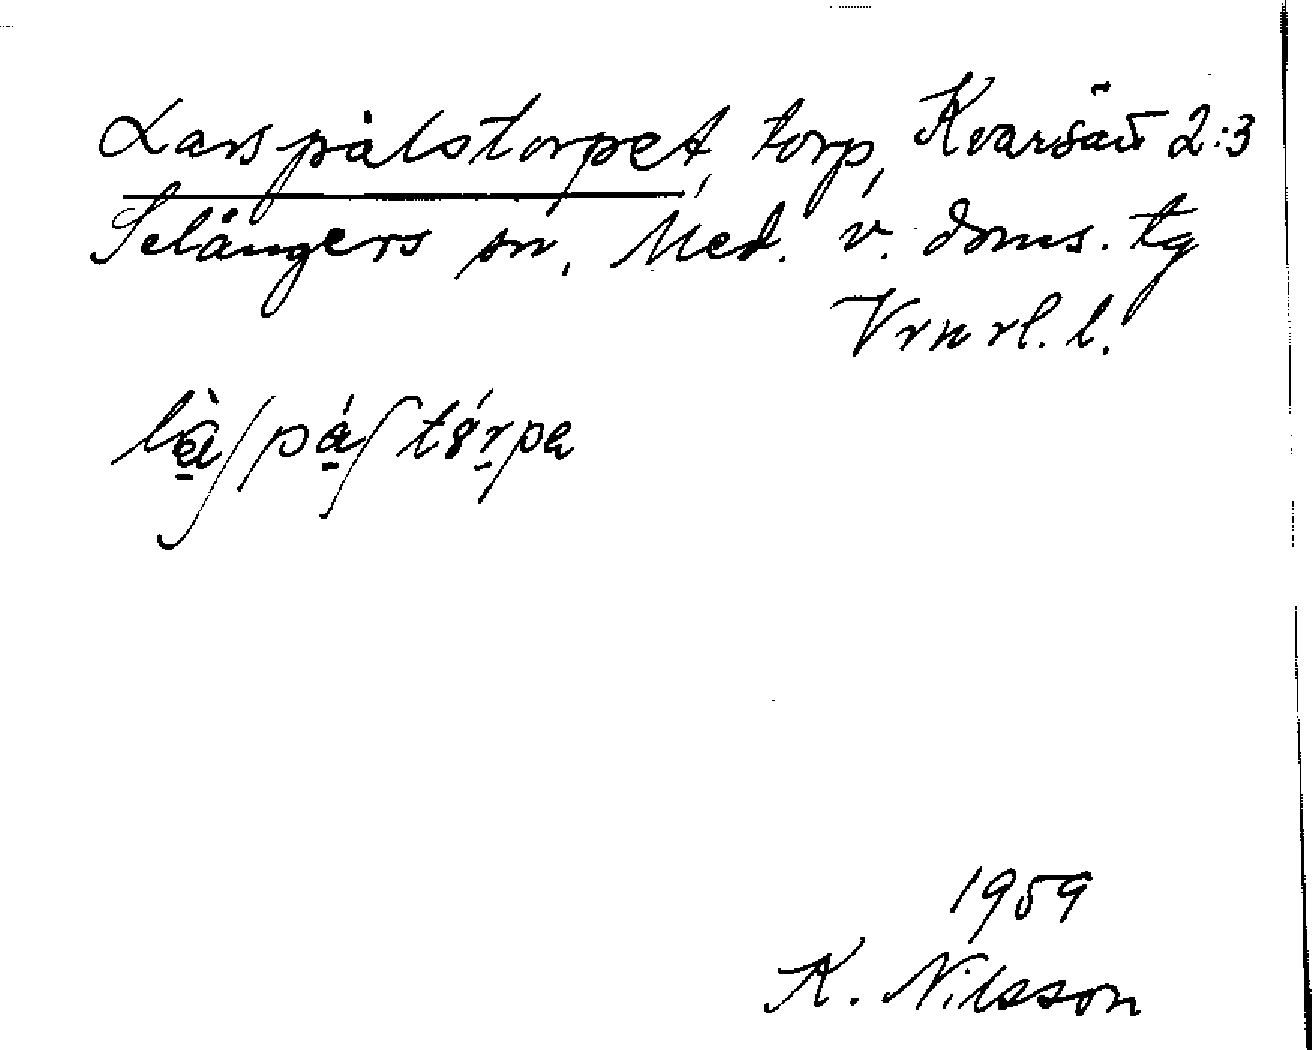 Larspålstorpet, torp, Kvarsätt 2:3
Selångers sn, Med. v. doms. tg
Vrn rl. l.
1959
K. Nilsson